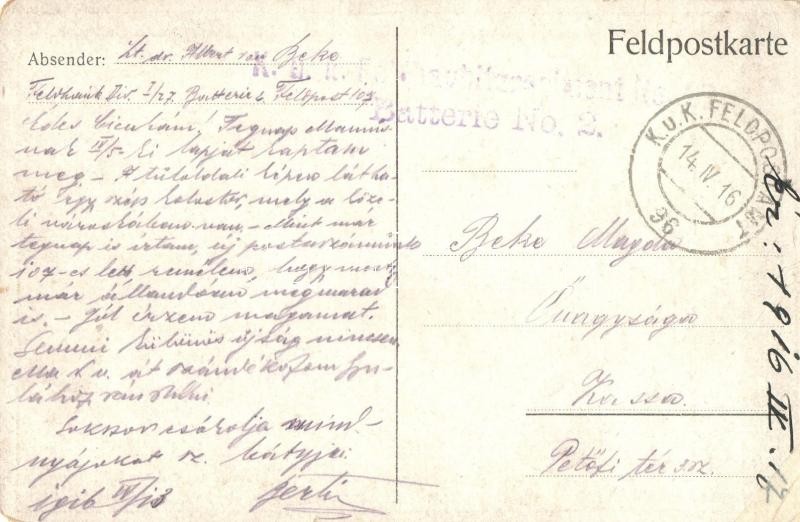 Feldpostkarte
Absender: Lt. dr. Albert von Beke
Feldhaub Div. I/27. Batterie 2. Feldpost 107
K. u. k. Feldhaubitzregiment No.
Batterie No. 2.
K.u.K. FELDPOSTAMT
14. IV. 16
96
Édes Cicukám! Tegnap Mamus-
nak IV/5-ki lapját kaptam
meg – A túloldali képen látha-
tó egy szép kolostor, mely a köze-
li városkában van, – Mint már
tegnap is írtam, új postaszámunk
107-es lett remélem, hogy most
már állandóan megmarad
is. – Jól érzem magamat.
Semmi különös újság nincsen.
Ma d.u. át szándékozom
Sokszor csókolja mind-
nyájokat sz. bátyja:
1916 IV/13 Berti
Beke Magda
Őnagysága
Kassa.
Petőfi tér sz.
én: 1916 IV. 17